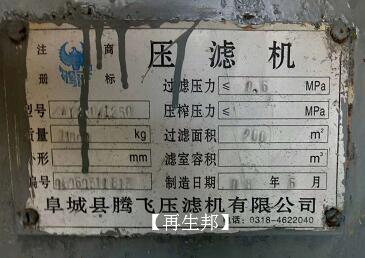 注 商 压滤机
册 标
过滤压力 ≤ 0.6 MPa
型号 1250 压榨压力 ≤ MPa
质量 kg 过滤面积 200 m²
外形 mm 滤室容积 m³
编号 制造日期 年 6 月
阜城县腾飞压滤机有限公司
【再生邦】 电话: 0318-4622040